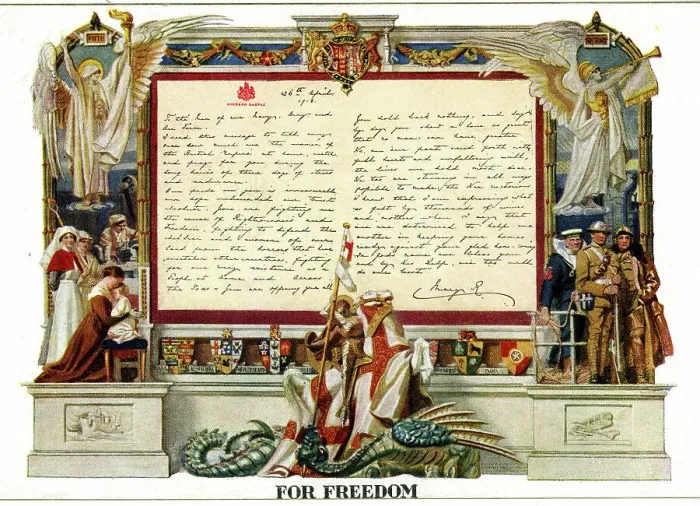 FAITH
WINDSOR CASTLE
26th April,
1918.
To the Men of our Navy, Army and
Air Force.
I send this message to tell every
man how much we, the women of
the British Empire at home, watch
and pray for you during the
long hours of these days of stress
and endurance.
Our pride in you is immeasurable,
our hope unbounded, our trust
absolute. You are fighting in
the cause of Righteousness and
Freedom, fighting to defend the
children and women of our
land from the horrors that have
overtaken other countries, fighting
for our very existence as a
People at Home and Across
the Seas. You are offering your all
You hold back nothing, and day
by day you show a love so great
that no man can have greater.
We, on our part send forth with
full hearts and unfaltering will,
the lives we hold most dear.
We too are striving in all ways
possible to make the War victorious
I know that I am expressing what
is felt by thousands of wives
and mothers when I say that
we are determined to help one
another in keeping your homes
ready against your glad home-coming
In God's name we bless you
and by His help we too will
do our best
Mary R.
INDIA
FOR FREEDOM